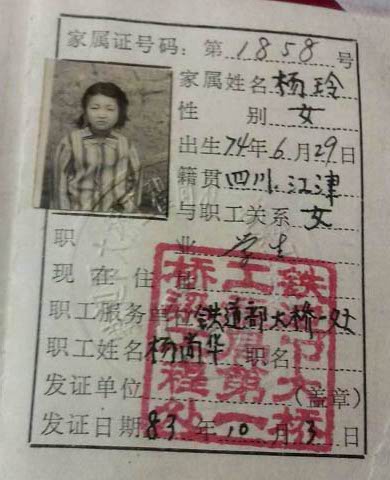 家属证号码：第1858号
家属姓名 杨玲
性别 女
出生74年6月29日
籍贯 四川江津
与职工关系 女
职业 学生
现在住址
职工服务单位 铁道部大桥一处
职工姓名 杨尚华 职名
发证单位 (盖章)
发证日期 83年10月3日